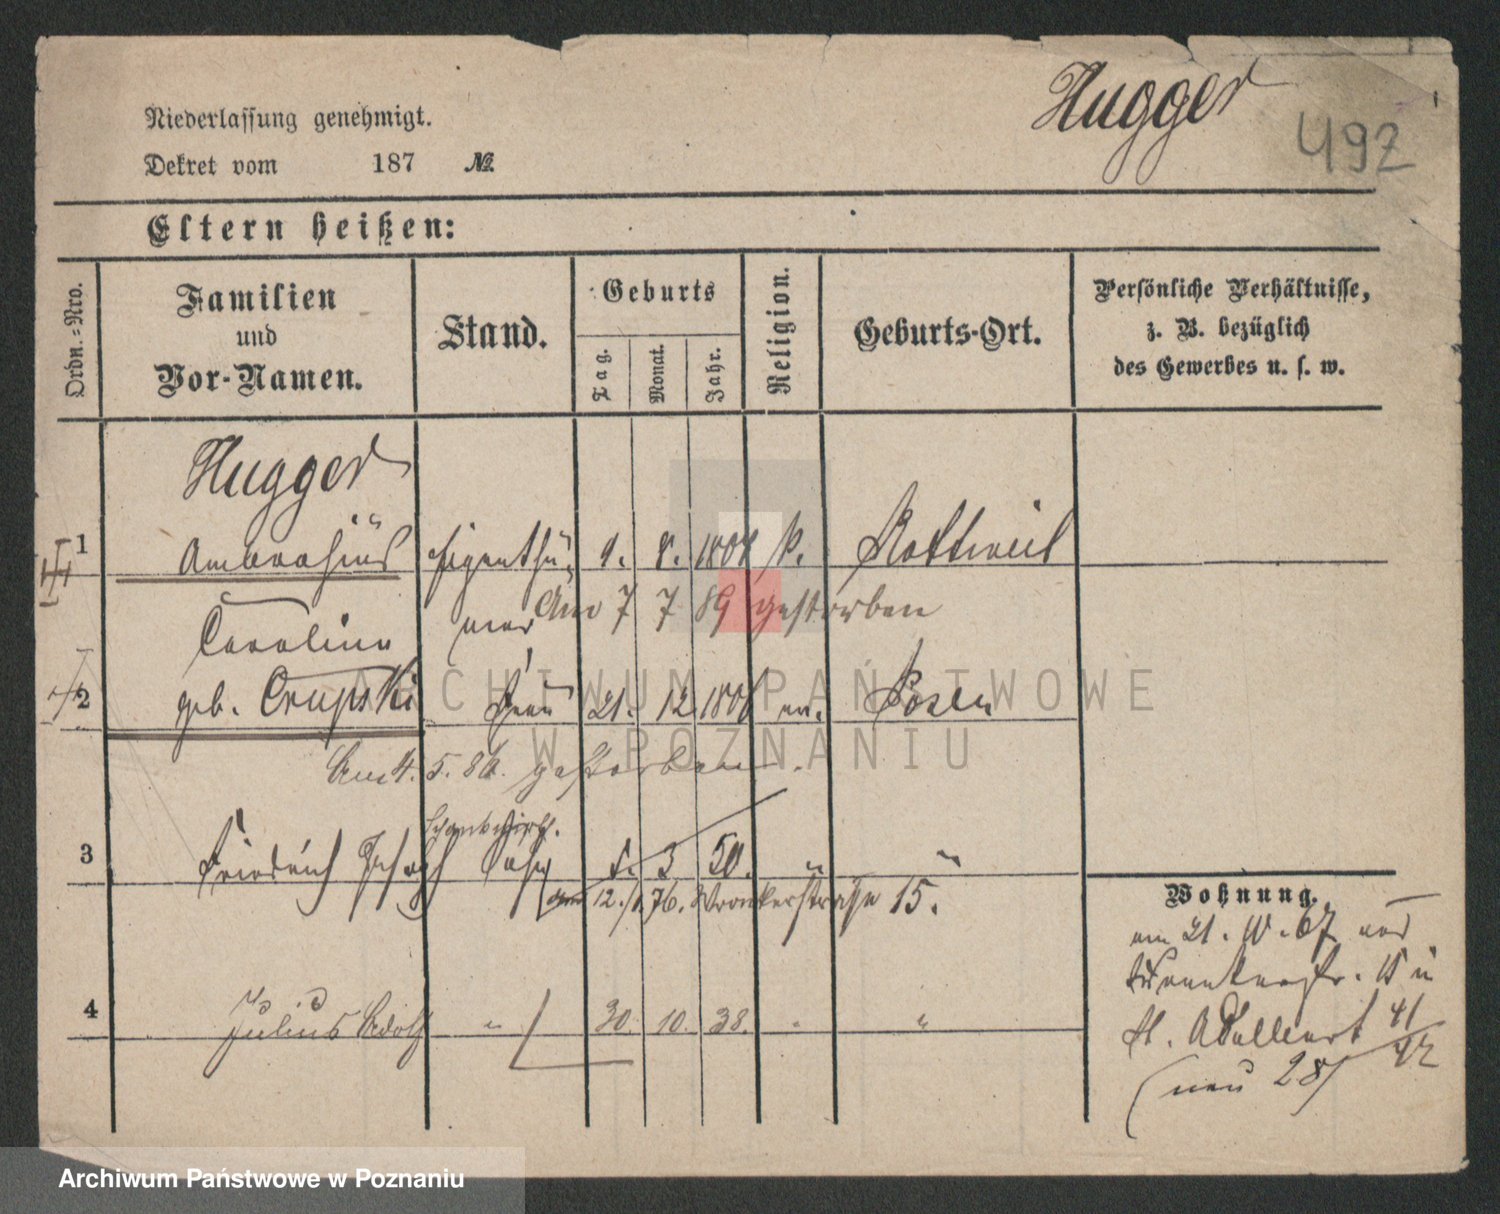 Hugger
492
Niederlassung genehmigt.
Dekret vom 187 №.
Eltern heißen:
Ordn.=Nro.
Familien und Vor-Namen.
Stand.
Geburts
Tag. Monat. Jahr.
Religion.
Geburts-Ort.
Persönliche Verhältnisse,
z. B. bezüglich
des Gewerbes u. s. w.
Hugger
1 Ambrosius Eigenthü= 9. 8. 1804 k. Rottweil
mer Am 7 7 89 gestorben
Caroline
2 geb. Crupski Frau 21. 12 1806 ev. Posen
Am 4. 5. 86. gestorben.
Schankwirth.
3 Friedrich Joseph Sohn 5. 3 50. " "
12. 76. Wronkerstraße 15.
4 Julius Adolf " 30. 10. 38. " "
Wohnung.
am 21. 10. 67 von
Wronkerstr. 15 u
St. Adalbert 41/42
(neu 28)
ARCHIWUM PAŃSTWOWE
W POZNANIU
Archiwum Państwowe w Poznaniu